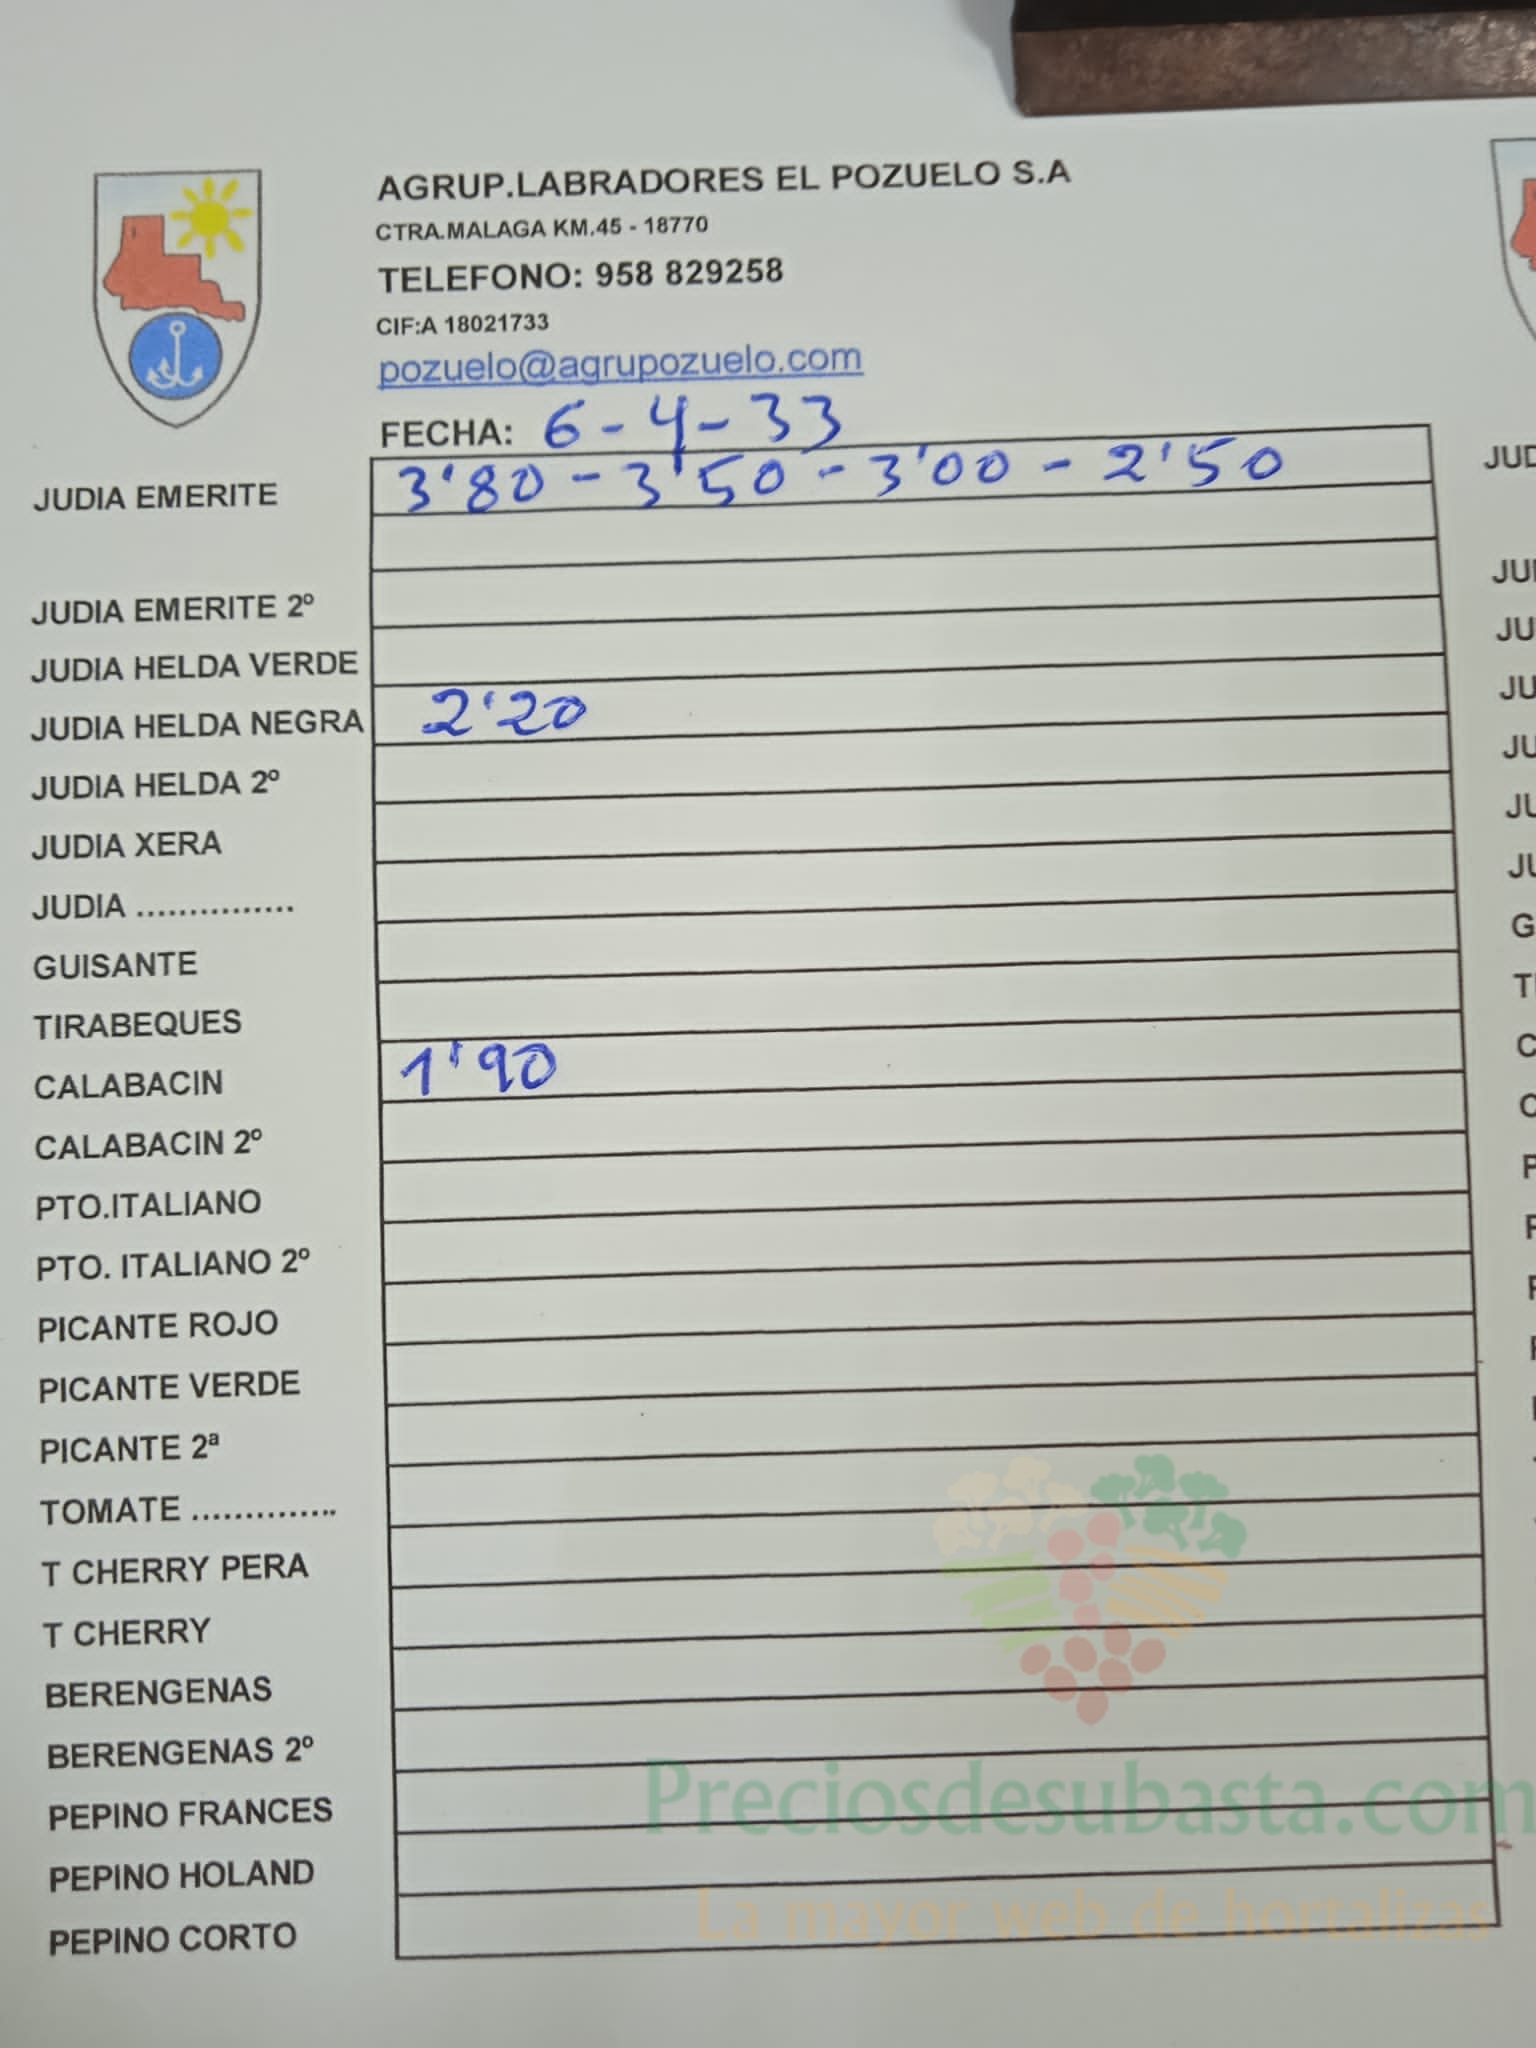 AGRUP.LABRADORES EL POZUELO S.A
CTRA.MALAGA KM.45 - 18770
TELEFONO: 958 829258
CIF:A 18021733
pozuelo@agrupozuelo.com
FECHA: 6-4-33
JUDIA EMERITE 3'80 - 3'50 - 3'00 - 2'50
JUDIA EMERITE 2º
JUDIA HELDA VERDE
JUDIA HELDA NEGRA 2'20
JUDIA HELDA 2º
JUDIA XERA
JUDIA ...............
GUISANTE
TIRABEQUES
CALABACIN 1'90
CALABACIN 2º
PTO.ITALIANO
PTO. ITALIANO 2º
PICANTE ROJO
PICANTE VERDE
PICANTE 2ª
TOMATE ..............
T CHERRY PERA
T CHERRY
BERENGENAS
BERENGENAS 2º
PEPINO FRANCES
PEPINO HOLAND
PEPINO CORTO
Preciosdesubasta.com
La mayor web de hortalizas